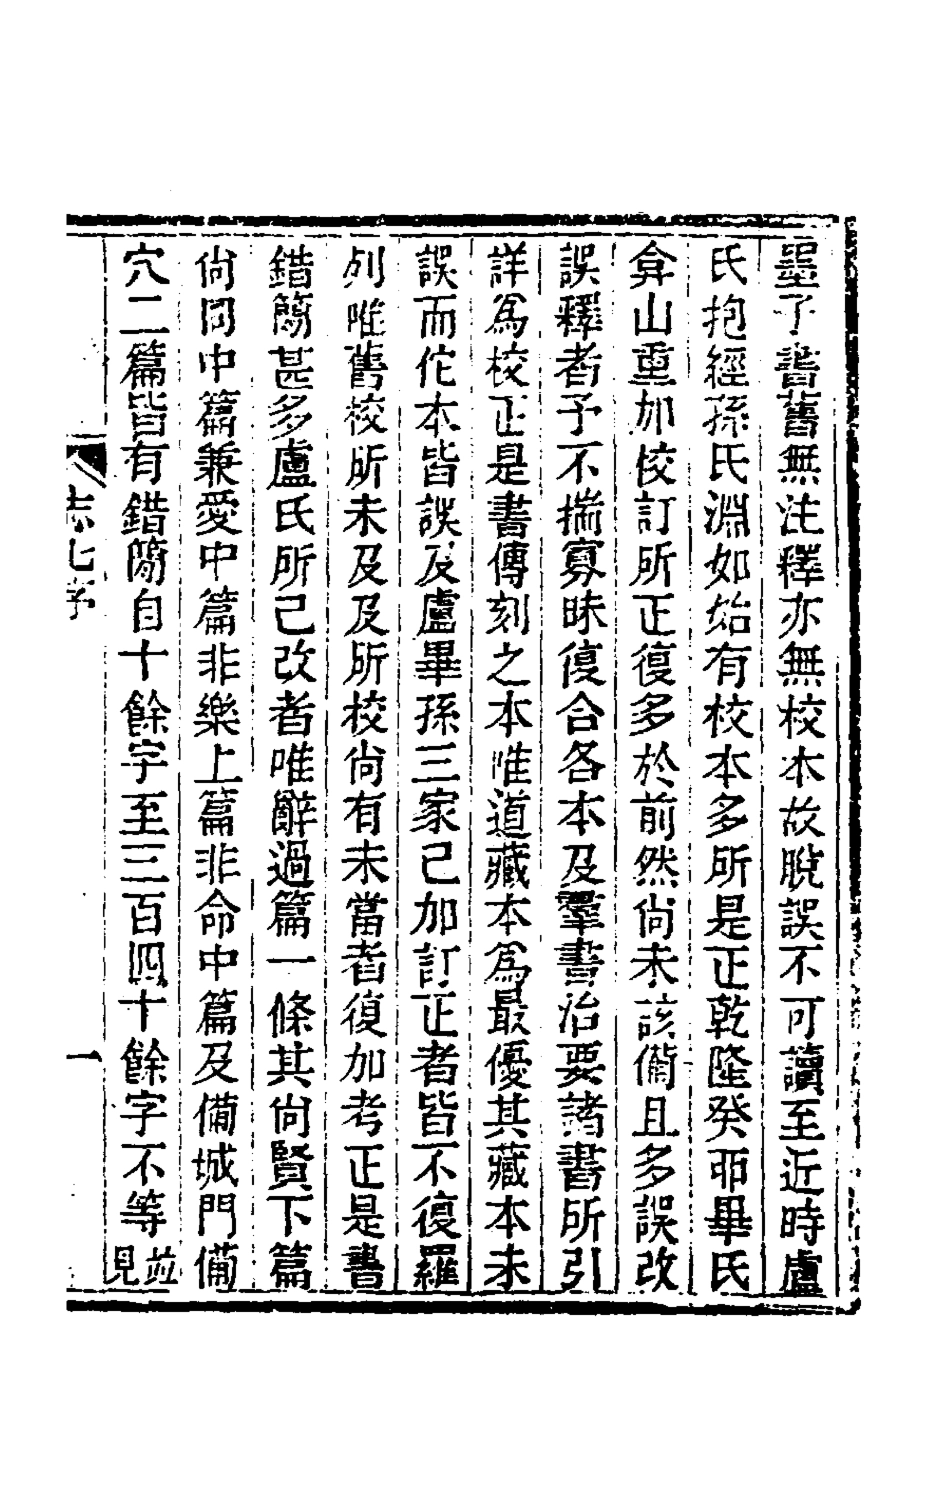 墨子書舊無注釋亦無校本故脫誤不可讀至近時盧
氏抱經孫氏淵如始有校本多所是正乾隆癸卯畢氏
弇山重加校訂所正復多於前然尚未該備且多誤改
誤釋者予不揣寡昧復合各本及羣書治要諸書所引
詳爲校正是書傳刻之本惟道藏本爲最優其藏本未
誤而佗本皆誤及盧畢孫三家已加訂正者皆不復羅
列唯舊校所未及及所校尚有未當者復加考正是書
錯簡甚多盧氏所已改者唯辭過篇一條其尚賢下篇
尚同中篇兼愛中篇非樂上篇非命中篇及備城門備
穴二篇皆有錯簡自十餘字至三百四十餘字不等並見
志七序
一